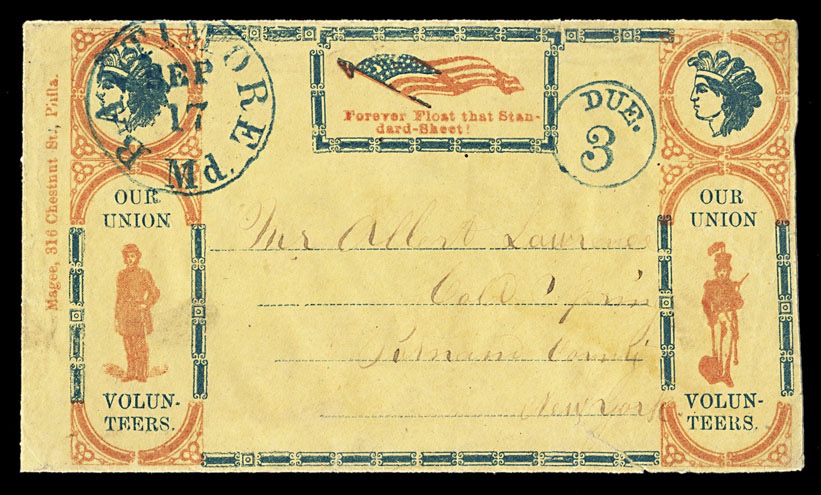 BALTIMORE
SEP
17
Md.
Forever Float that Stan-
dard-Sheet!
DUE.
3
Magee, 316 Chestnut St., Phila.
OUR
UNION
VOLUN-
TEERS.
Mr Albert Lawrence
Cold Spring
Putnam County
New York
OUR
UNION
VOLUN-
TEERS.